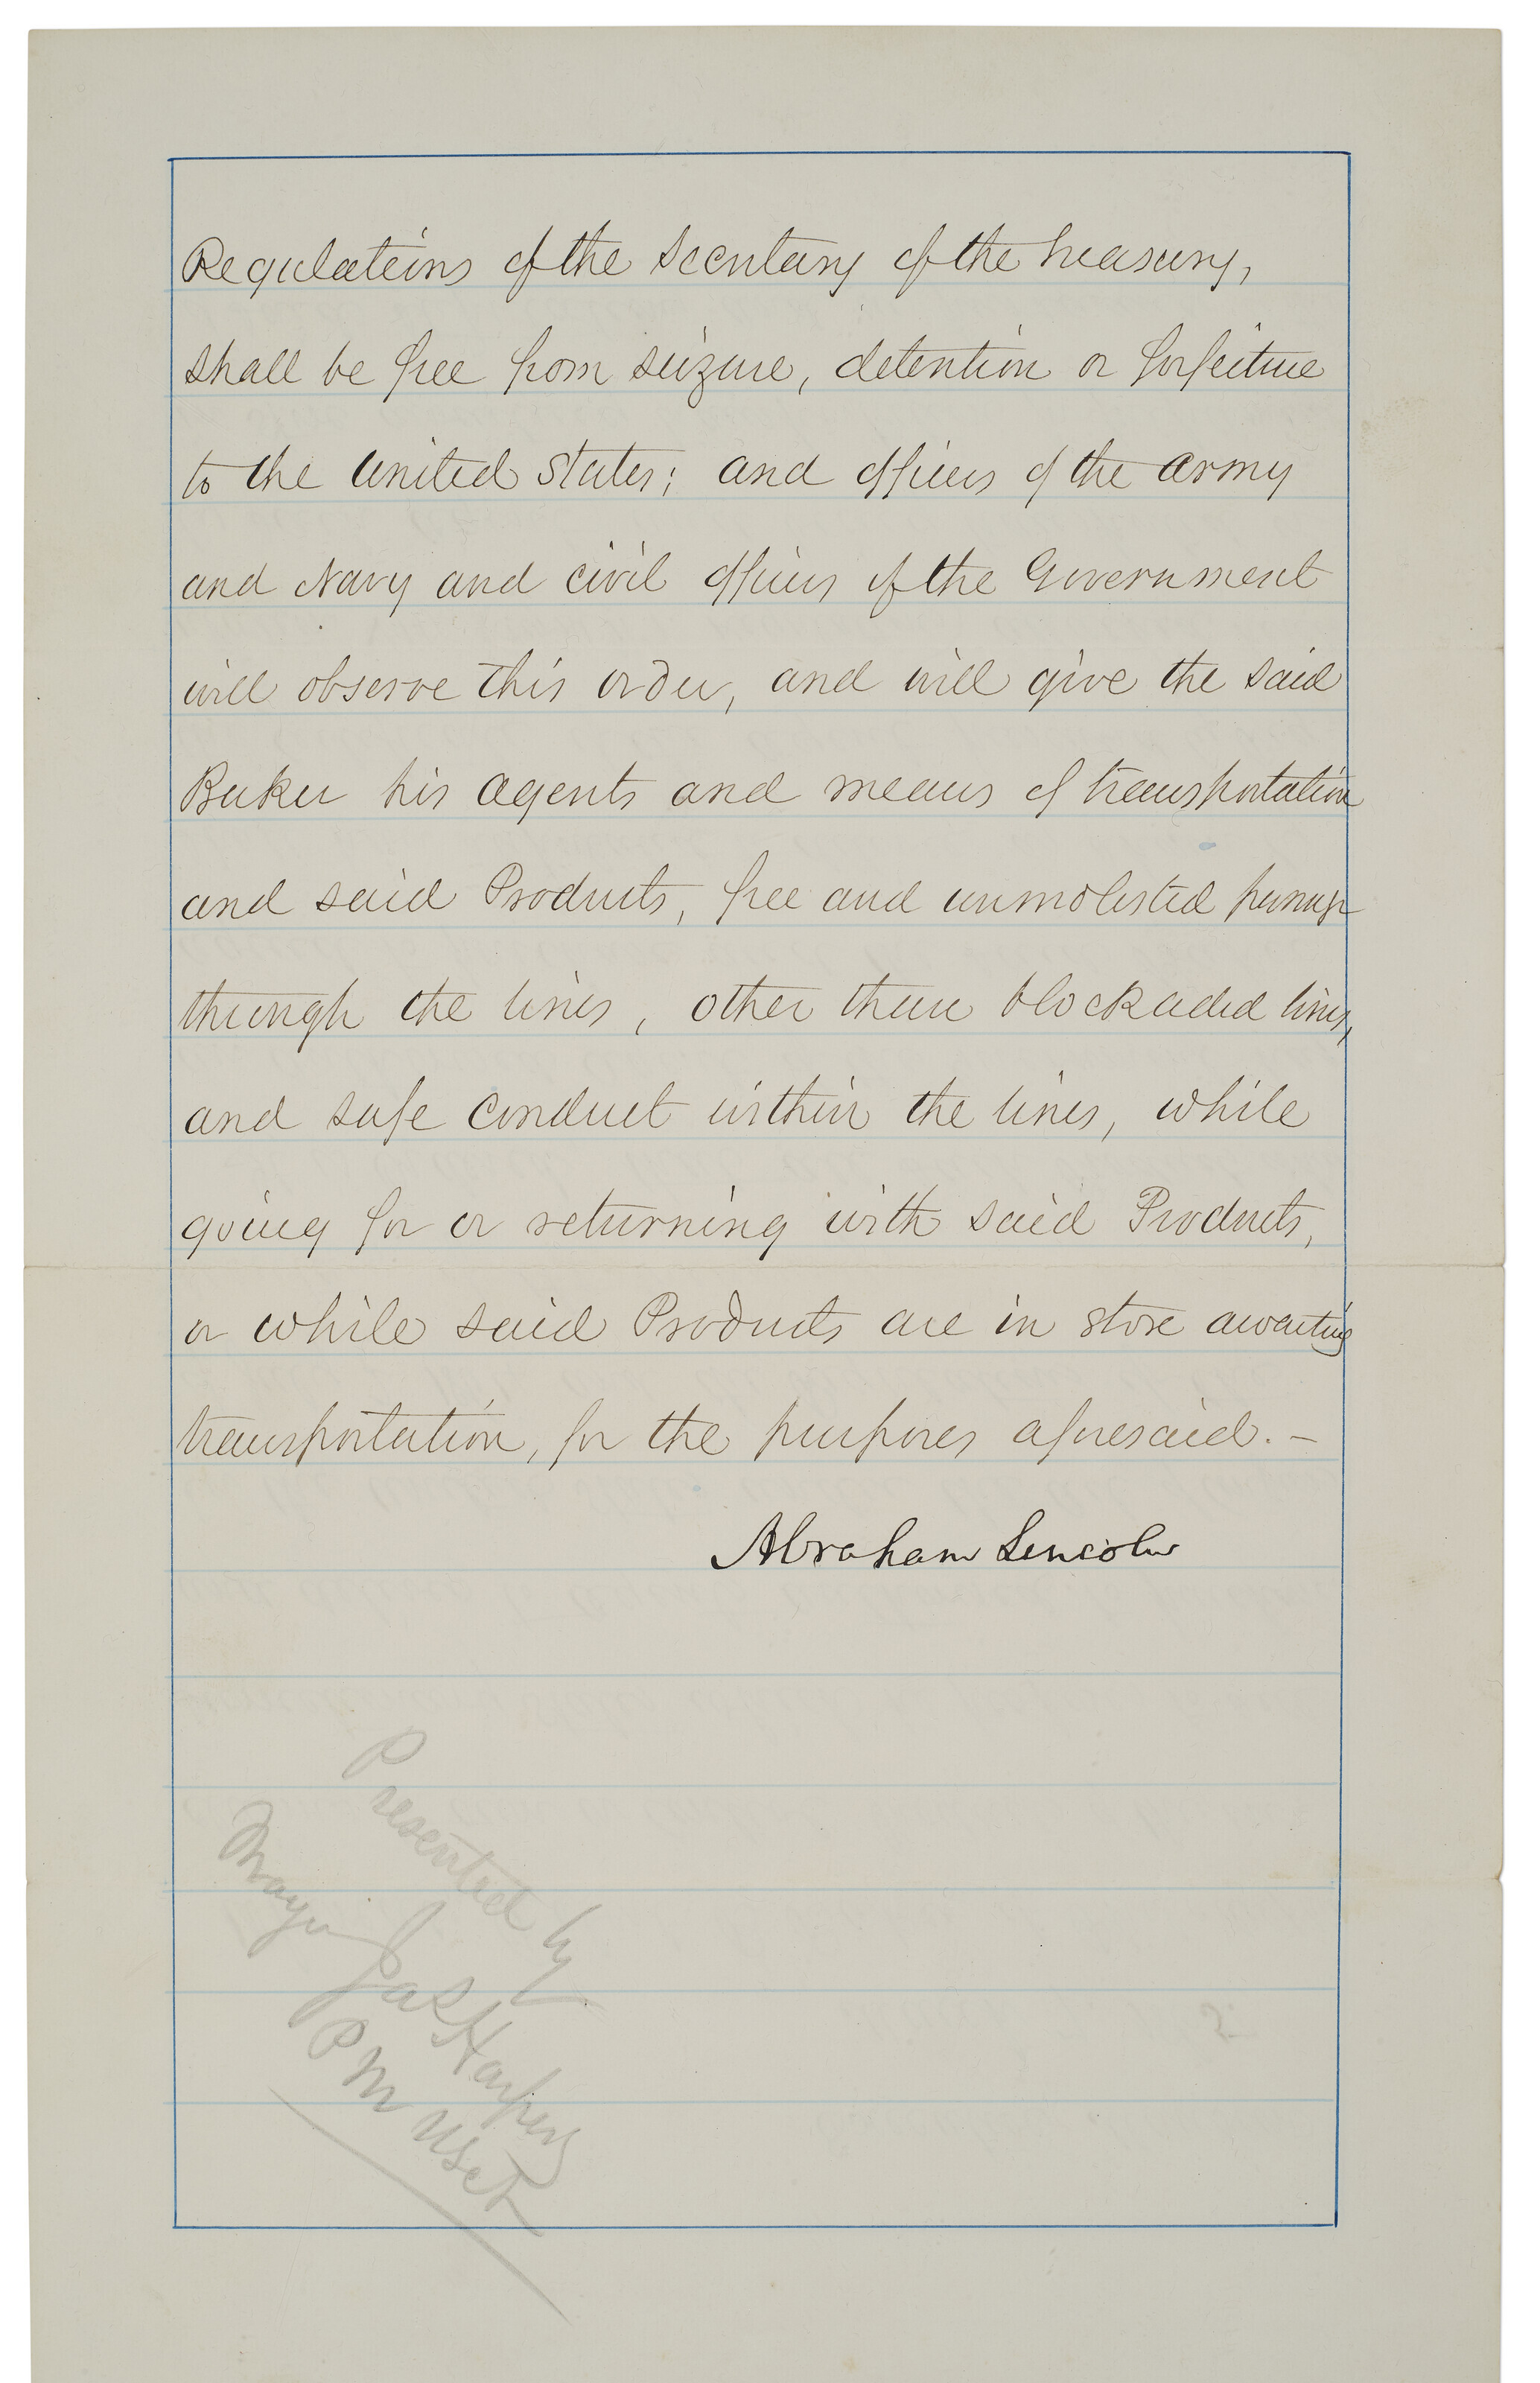 Regulations of the Secretary of the Treasury,
shall be free from seizure, detention or forfeiture
to the United States; and officers of the Army
and Navy and civil officers of the Government
will observe this order, and will give the said
Baker his agents and means of transportation
and said Products, free and unmolested passage
through the lines, other than blockaded lines,
and safe conduct within the lines, while
going for or returning with said Products,
or while said Products are in store awaiting
transportation, for the purposes aforesaid. —
Abraham Lincoln
Presented by
Mayor
Jas Harpers
P M